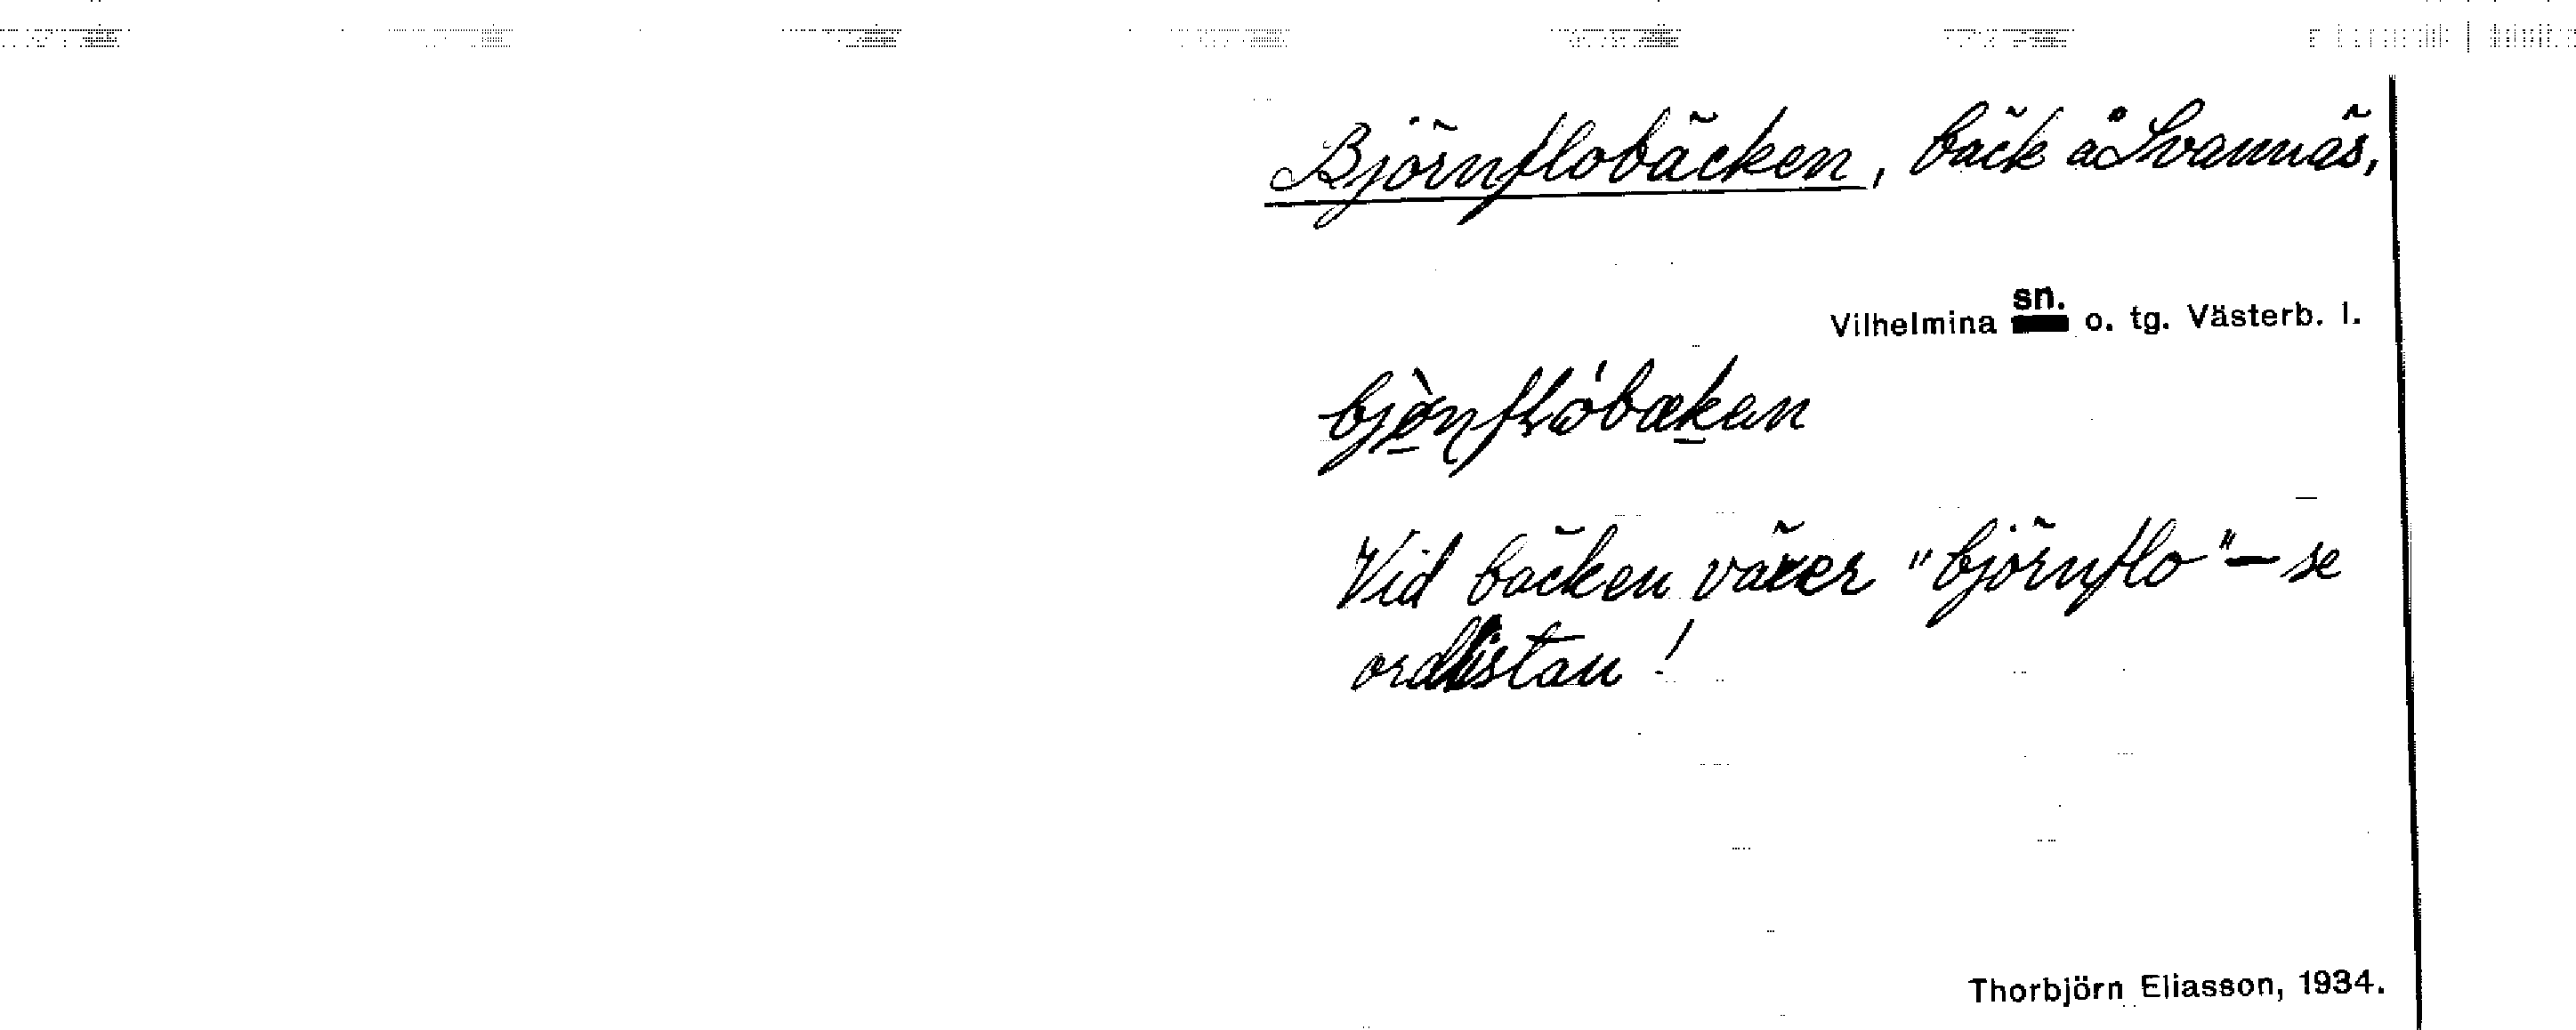 Björnflobäcken, bäck å Svannäs,
Vilhelmina sn. o. tg. Västerb. l.
Vid bäcken växer "björnflo" – se
ordlistan!
Thorbjörn Eliasson, 1934.